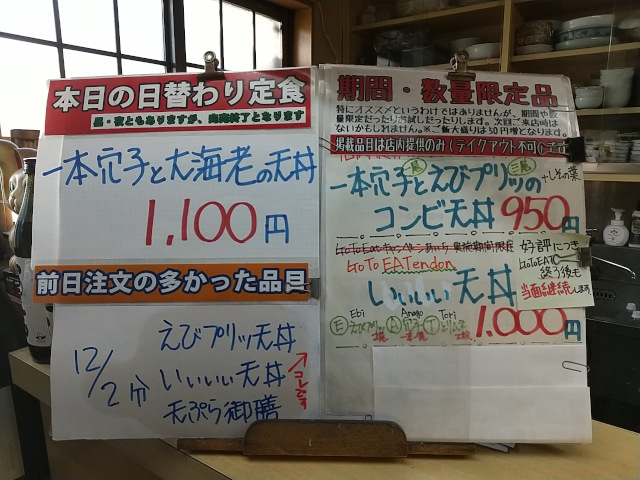 本日の日替わり定食
昼・夜ともありますが、完売終了となります
一本穴子と大海老の天丼
1,100円
前日注文の多かった品目
12/2分
えびプリッ天丼
いいいい天丼
天ぷら御膳
コレです
期間・数量限定品
特にオススメというわけではありませんが、期間や数
量限定だったりお試しだったりします。次回ご来店時は
ないかもしれません。※ご飯大盛りは50円増となります。
掲載品目は店内提供のみ（テイクアウト不可）です
一本穴子とえびプリッの
二尾
+しその葉
コンビ天丼 950円
GoToEatキャンペーンあいち 実施期間限定
GoTo EATendon
いいいい天丼
好評につき
GoToEAT
終了後も
当面継続します
Ebi Anago Tori
E えびプリッ A 穴子 T とりムネ
1,000円